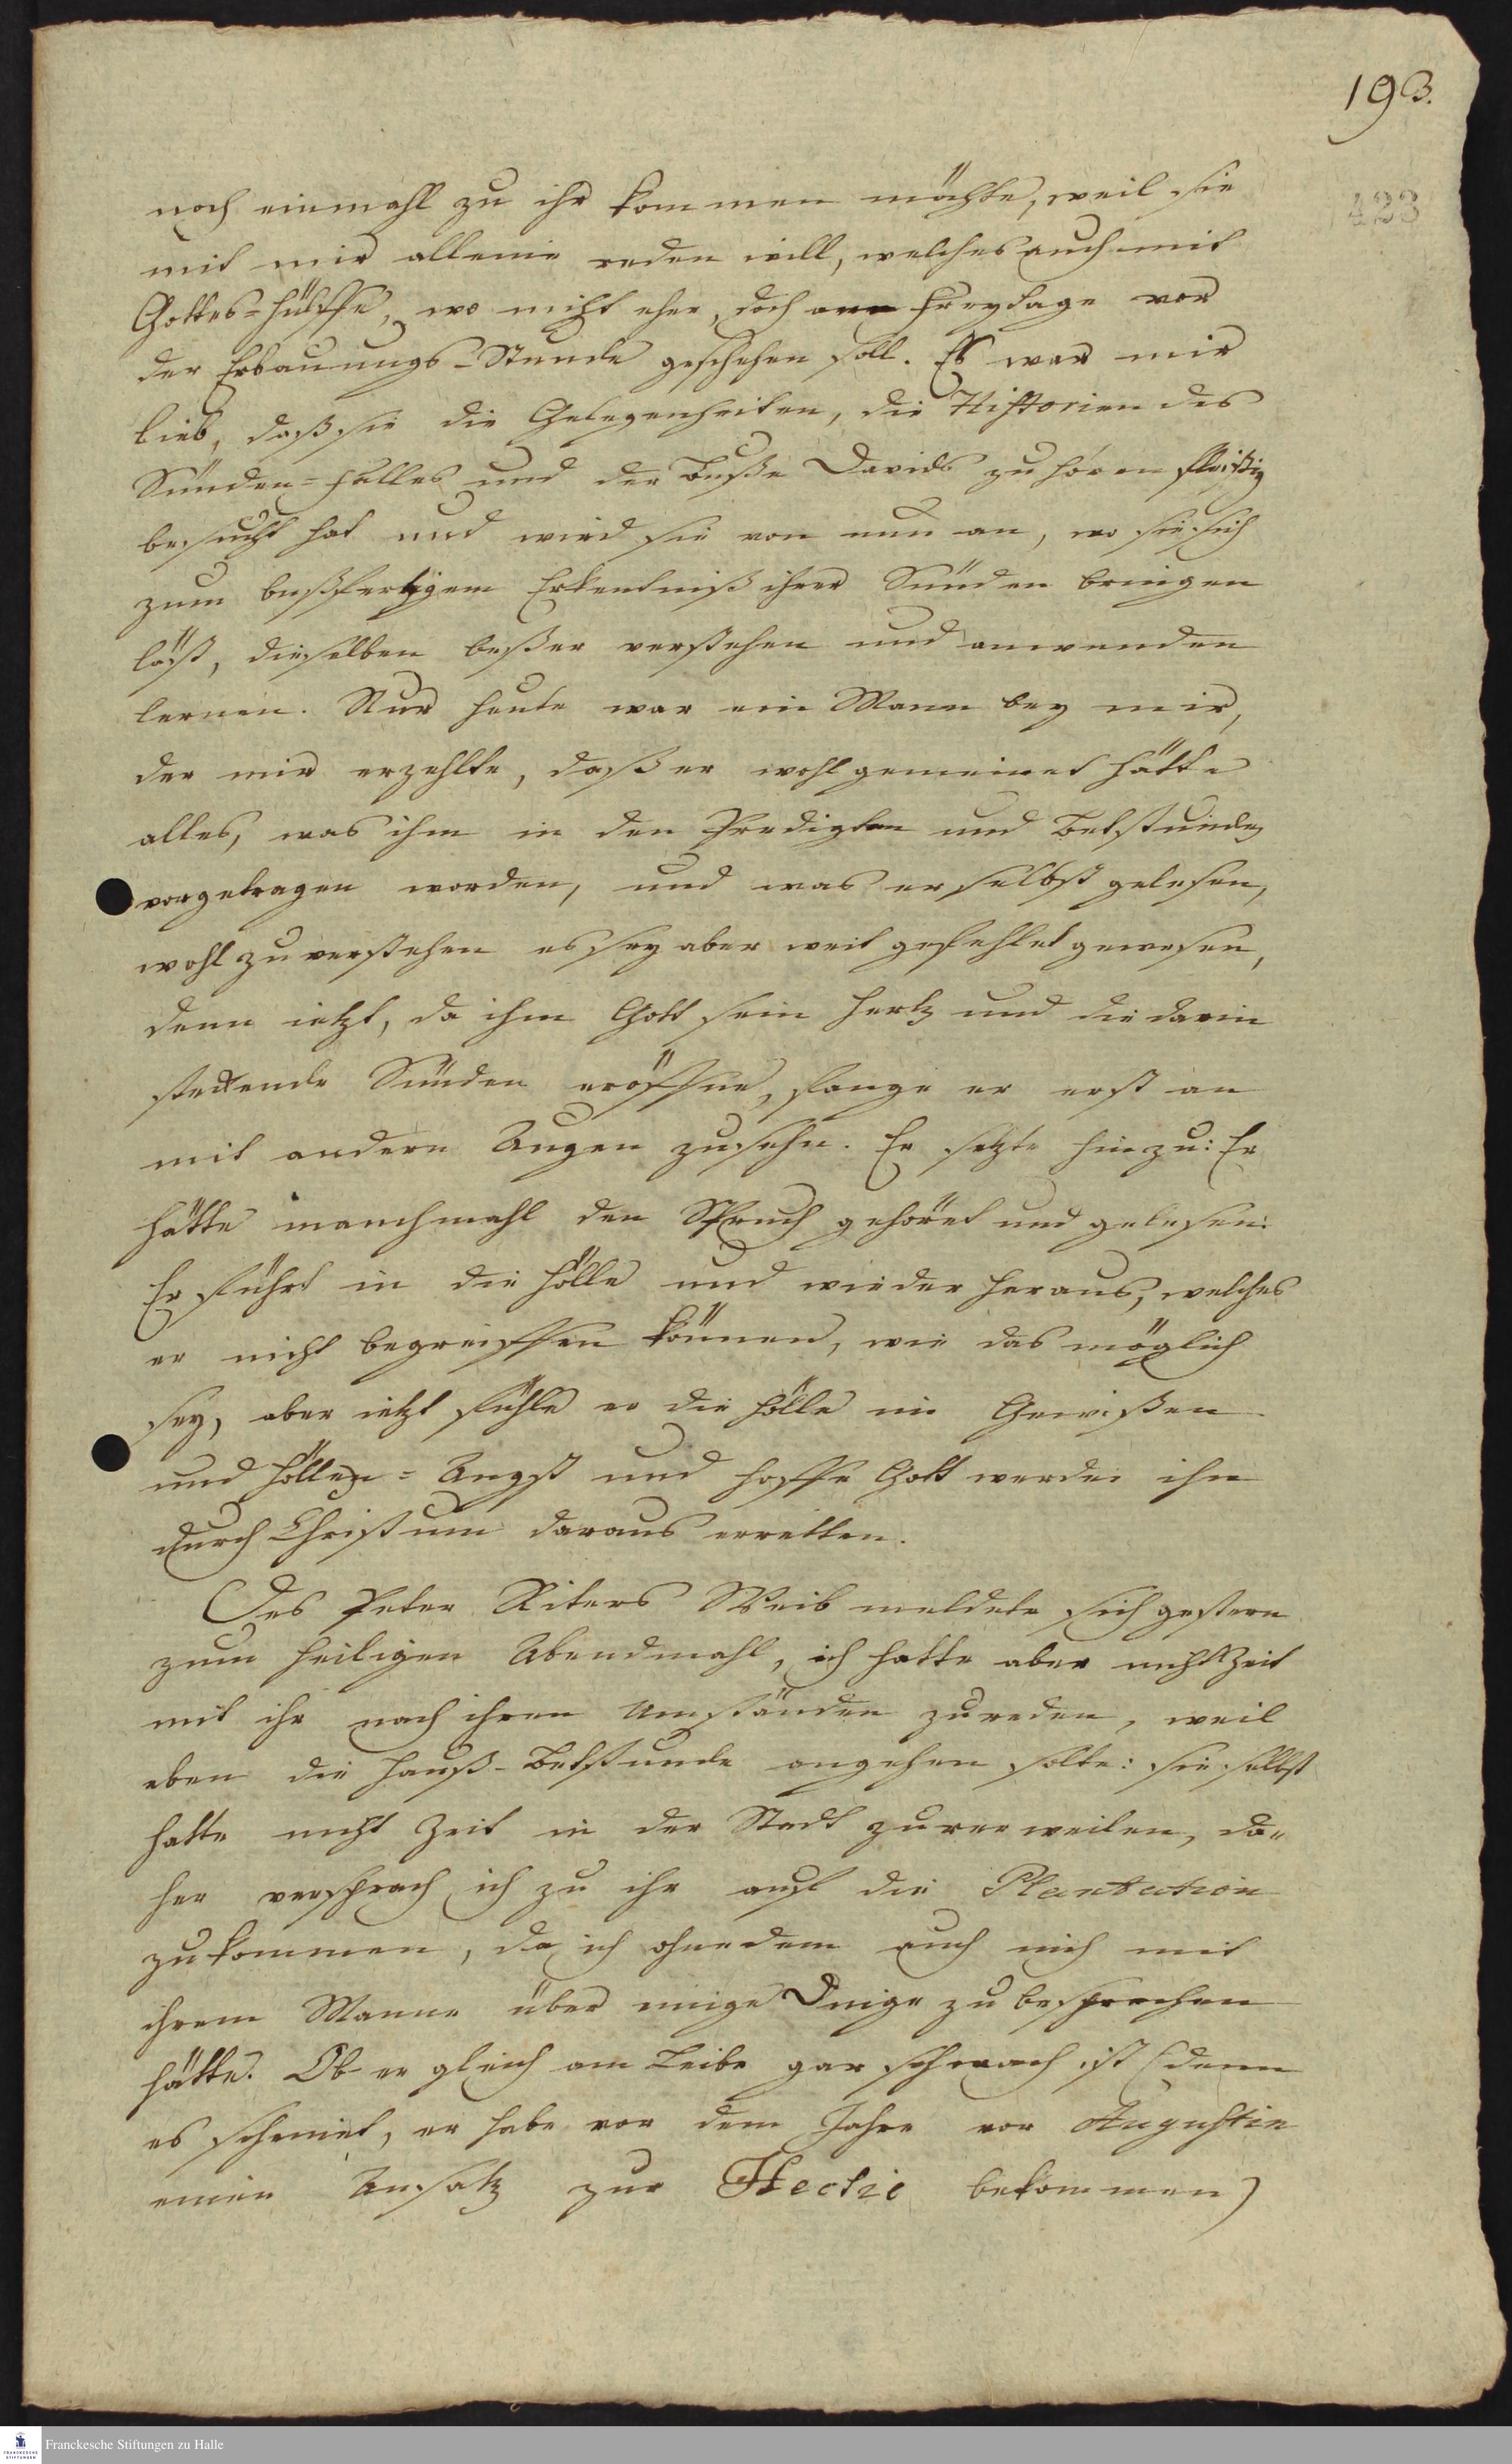 193.
423
noch einmahl zu ihr kommen möchte, weil sie
mit mir alleine reden will, welches auch mit
Gottes-Hülffe, wo nicht eher, doch am Freytage vor
der Erbauungs-Stunde geschehen soll. Es war mir
lieb, daß sie die Gelegenheiten, die Historien des
Sünden-Falles und der Buße Davids zu hören fleißig
besucht hat und wird sie von nun an, wo sie sich
zum bußfertigem Erkentniß ihrer Sünden bringen
läst, dieselben beßer verstehen und anwenden
lernen. Nur heute war ein Mann bey mir,
der mir erzehlte, daß er wohl gemeinet hätte
alles, was ihm in den Predigten und Betstunden
vorgetragen worden, und was er selbst gelesen,
wohl zu verstehen es sey aber weit gefehlet gewesen,
denn ietzt, da ihm Gott sein Hertz und die darin
steckende Sünden eröffne, fange er erst an
mit andern Augen zu sehn. Er setzte hinzu: Er
hätte manchmahl den Spruch gehöret und gelesen:
Er führt in die Hölle und wieder heraus, welches
er nicht begreiffen können, wie das möglich
sey, aber ietzt fühle er die Hölle im Gewißen
und Höllen-Angst und hoffe Gott werde ihn
durch Christum daraus erretten.
Des Peter Riters Weib meldete sich gestern
zum heiligen Abendmahl, ich hatte aber nicht Zeit
mit ihr nach ihren Umständen zu reden, weil
eben die Hauß-Betstunde angehen solte: sie selbst
hatte nicht Zeit in der Stadt zu verweilen, da-
her versprach ich zu ihr auf die Plantation
zu kommen, da ich ohnedem auch mich mit
ihrem Manne über einige Dinge zu besprechen
hätte. Ob er gleich am Leibe gar schwach ist (denn
es scheinet, er habe vor dem Jahre vor Augustin
einen Ansatz zur Hectic bekommen)
Franckesche Stiftungen zu Halle